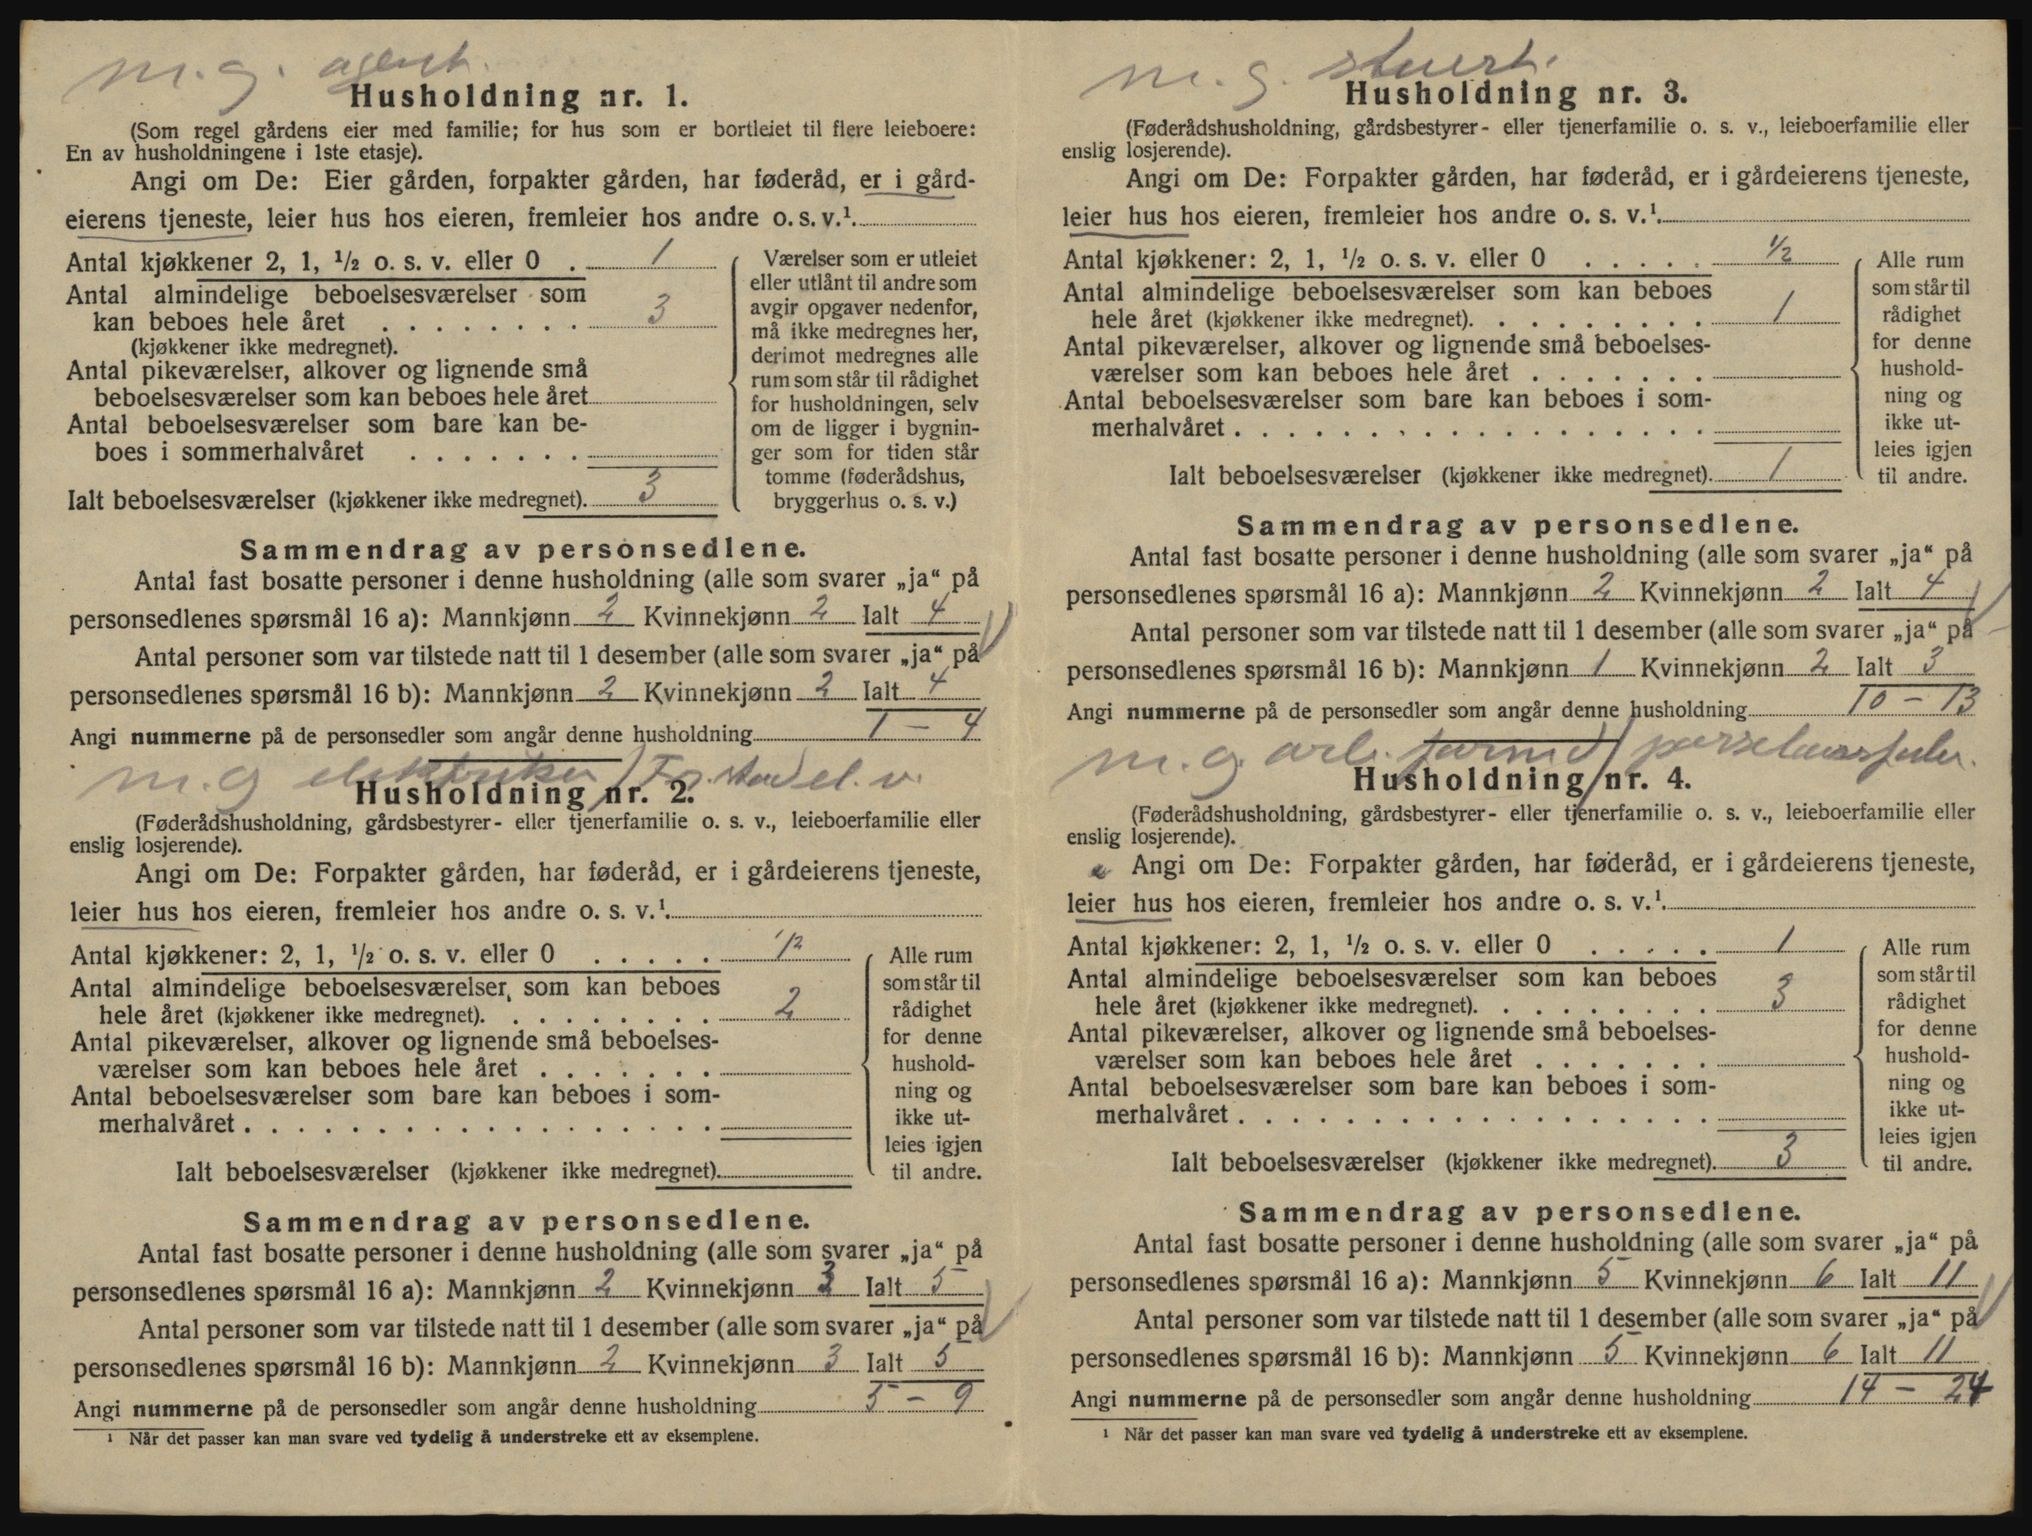 m. g. agent.
Husholdning nr. 1.
(Som regel gårdens eier med familie; for hus som er bortleiet til flere leieboere:
En av husholdningene i 1ste etasje).
Angi om De: Eier gården, forpakter gården, har føderåd, er i gård-
eierens tjeneste, leier hus hos eieren, fremleier hos andre o. s. v.¹.
Antal kjøkkener 2, 1, ½ o. s. v. eller 0 . 1
Antal almindelige beboelsesværelser som
kan beboes hele året . . . . . . . . 3
(kjøkkener ikke medregnet).
Antal pikeværelser, alkover og lignende små
beboelsesværelser som kan beboes hele året
Antal beboelsesværelser som bare kan be-
boes i sommerhalvåret . . . . . . .
Ialt beboelsesværelser (kjøkkener ikke medregnet). 3
Værelser som er utleiet
eller utlånt til andre som
avgir opgaver nedenfor,
må ikke medregnes her,
derimot medregnes alle
rum som står til rådighet
for husholdningen, selv
om de ligger i bygnin-
ger som for tiden står
tomme (føderådshus,
bryggerhus o. s. v.)
Sammendrag av personsedlene.
Antal fast bosatte personer i denne husholdning (alle som svarer „ja“ på
personsedlenes spørsmål 16 a): Mannkjønn 2 Kvinnekjønn 2 Ialt 4
Antal personer som var tilstede natt til 1 desember (alle som svarer „ja“ på
personsedlenes spørsmål 16 b): Mannkjønn 2 Kvinnekjønn 2 Ialt 4
Angi nummerne på de personsedler som angår denne husholdning 1 – 4
m. g. elektriker el. v.
Husholdning nr. 2.
(Føderådshusholdning, gårdsbestyrer- eller tjenerfamilie o. s. v., leieboerfamilie eller
enslig losjerende).
Angi om De: Forpakter gården, har føderåd, er i gårdeierens tjeneste,
leier hus hos eieren, fremleier hos andre o. s. v.¹.
Antal kjøkkener: 2, 1, ½ o. s. v. eller 0 . . . . . 1/2
Antal almindelige beboelsesværelser som kan beboes
hele året (kjøkkener ikke medregnet). . . . . . . . . 2
Antal pikeværelser, alkover og lignende små beboelses-
værelser som kan beboes hele året . . . . . . .
Antal beboelsesværelser som bare kan beboes i som-
merhalvåret . . . . . . . . . . . . . . . . . .
Ialt beboelsesværelser (kjøkkener ikke medregnet).
Alle rum
som står til
rådighet
for denne
hushold-
ning og
ikke ut-
leies igjen
til andre.
Sammendrag av personsedlene.
Antal fast bosatte personer i denne husholdning (alle som svarer „ja“ på
personsedlenes spørsmål 16 a): Mannkjønn 2 Kvinnekjønn 3 Ialt 5
Antal personer som var tilstede natt til 1 desember (alle som svarer „ja“ på
personsedlenes spørsmål 16 b): Mannkjønn 2 Kvinnekjønn 3 Ialt 5
Angi nummerne på de personsedler som angår denne husholdning 5 – 9
¹ Når det passer kan man svare ved tydelig å understreke ett av eksemplene.
m. g. stuert.
Husholdning nr. 3.
(Føderådshusholdning, gårdsbestyrer- eller tjenerfamilie o. s. v., leieboerfamilie eller
enslig losjerende).
Angi om De: Forpakter gården, har føderåd, er i gårdeierens tjeneste,
leier hus hos eieren, fremleier hos andre o. s. v.¹.
Antal kjøkkener: 2, 1, ½ o. s. v. eller 0 . . . . . 1/2
Antal almindelige beboelsesværelser som kan beboes
hele året (kjøkkener ikke medregnet). . . . . . . . . 1
Antal pikeværelser, alkover og lignende små beboelses-
værelser som kan beboes hele året . . . . . . .
Antal beboelsesværelser som bare kan beboes i som-
merhalvåret . . . . . . . . . . . . . . . . . .
Ialt beboelsesværelser (kjøkkener ikke medregnet). 1
Alle rum
som står til
rådighet
for denne
hushold-
ning og
ikke ut-
leies igjen
til andre.
Sammendrag av personsedlene.
Antal fast bosatte personer i denne husholdning (alle som svarer „ja“ på
personsedlenes spørsmål 16 a): Mannkjønn 2 Kvinnekjønn 2 Ialt 4
Antal personer som var tilstede natt til 1 desember (alle som svarer „ja“ på
personsedlenes spørsmål 16 b): Mannkjønn 1 Kvinnekjønn 2 Ialt 3
Angi nummerne på de personsedler som angår denne husholdning 10 – 13
m. g. arb. formd
Husholdning nr. 4.
(Føderådshusholdning, gårdsbestyrer- eller tjenerfamilie o. s. v., leieboerfamilie eller
enslig losjerende).
Angi om De: Forpakter gården, har føderåd, er i gårdeierens tjeneste,
leier hus hos eieren, fremleier hos andre o. s. v.¹.
Antal kjøkkener: 2, 1, ½ o. s. v. eller 0 . . . . . 1
Antal almindelige beboelsesværelser som kan beboes
hele året (kjøkkener ikke medregnet). . . . . . . . . 3
Antal pikeværelser, alkover og lignende små beboelses-
værelser som kan beboes hele året . . . . . . .
Antal beboelsesværelser som bare kan beboes i som-
merhalvåret . . . . . . . . . . . . . . . . . .
Ialt beboelsesværelser (kjøkkener ikke medregnet). 3
Alle rum
som står til
rådighet
for denne
hushold-
ning og
ikke ut-
leies igjen
til andre.
Sammendrag av personsedlene.
Antal fast bosatte personer i denne husholdning (alle som svarer „ja“ på
personsedlenes spørsmål 16 a): Mannkjønn 5 Kvinnekjønn 6 Ialt 11
Antal personer som var tilstede natt til 1 desember (alle som svarer „ja“ på
personsedlenes spørsmål 16 b): Mannkjønn 5 Kvinnekjønn 6 Ialt 11
Angi nummerne på de personsedler som angår denne husholdning 14 – 24
¹ Når det passer kan man svare ved tydelig å understreke ett av eksemplene.